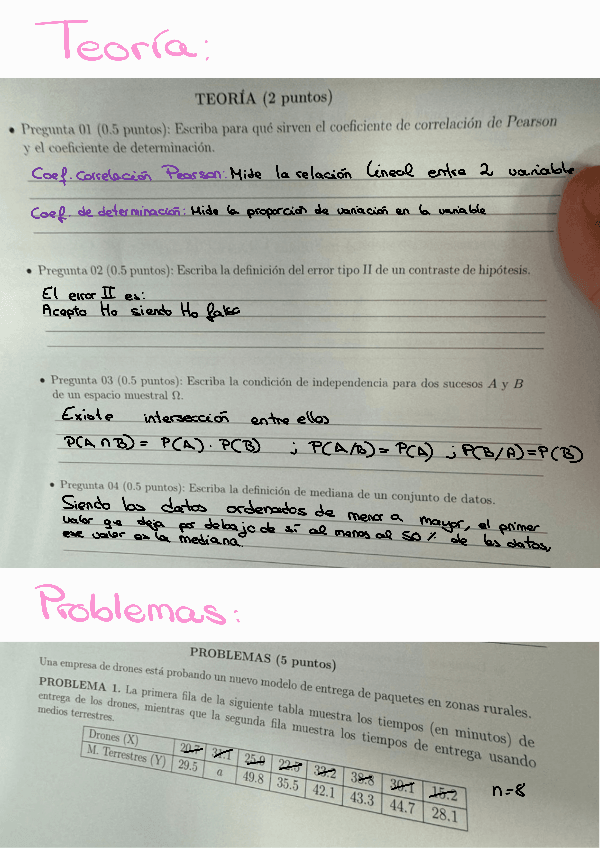 Teoría:
TEORÍA (2 puntos)
• Pregunta 01 (0.5 puntos): Escriba para qué sirven el coeficiente de correlación de Pearson
y el coeficiente de determinación.
Coef. correlación Pearson: Mide la relación lineal entre 2 variable
Coef. de determinación: Mide la proporción de variación en la variable
• Pregunta 02 (0.5 puntos): Escriba la definición del error tipo II de un contraste de hipótesis.
El error II es:
Acepto Ho siendo Ho falso
• Pregunta 03 (0.5 puntos): Escriba la condición de independencia para dos sucesos A y B
de un espacio muestral Ω.
Existe intersección entre ellos
P(A∩B) = P(A) · P(B) ; P(A/B) = P(A) ; P(B/A) = P(B)
• Pregunta 04 (0.5 puntos): Escriba la definición de mediana de un conjunto de datos.
Siendo los datos ordenados de menor a mayor, el primer
valor que deja por debajo de sí al menos al 50% de los datos,
ese valor es la mediana.
Problemas:
PROBLEMAS (5 puntos)
Una empresa de drones está probando un nuevo modelo de entrega de paquetes en zonas rurales.
PROBLEMA 1. La primera fila de la siguiente tabla muestra los tiempos (en minutos) de
entrega de los drones, mientras que la segunda fila muestra los tiempos de entrega usando
medios terrestres.
Drones (X) 31.1 33.2 30.1 15.2
M. Terrestres (Y) 29.5 a 49.8 35.5 42.1 43.3 44.7 28.1
n=8